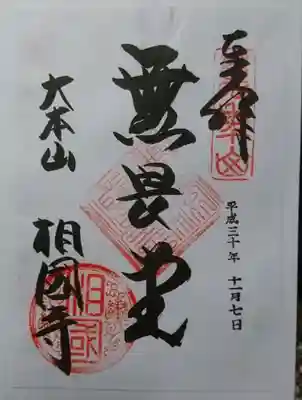 奉拝
平成三十年 十一月七日
無畏堂
大本山 相国寺